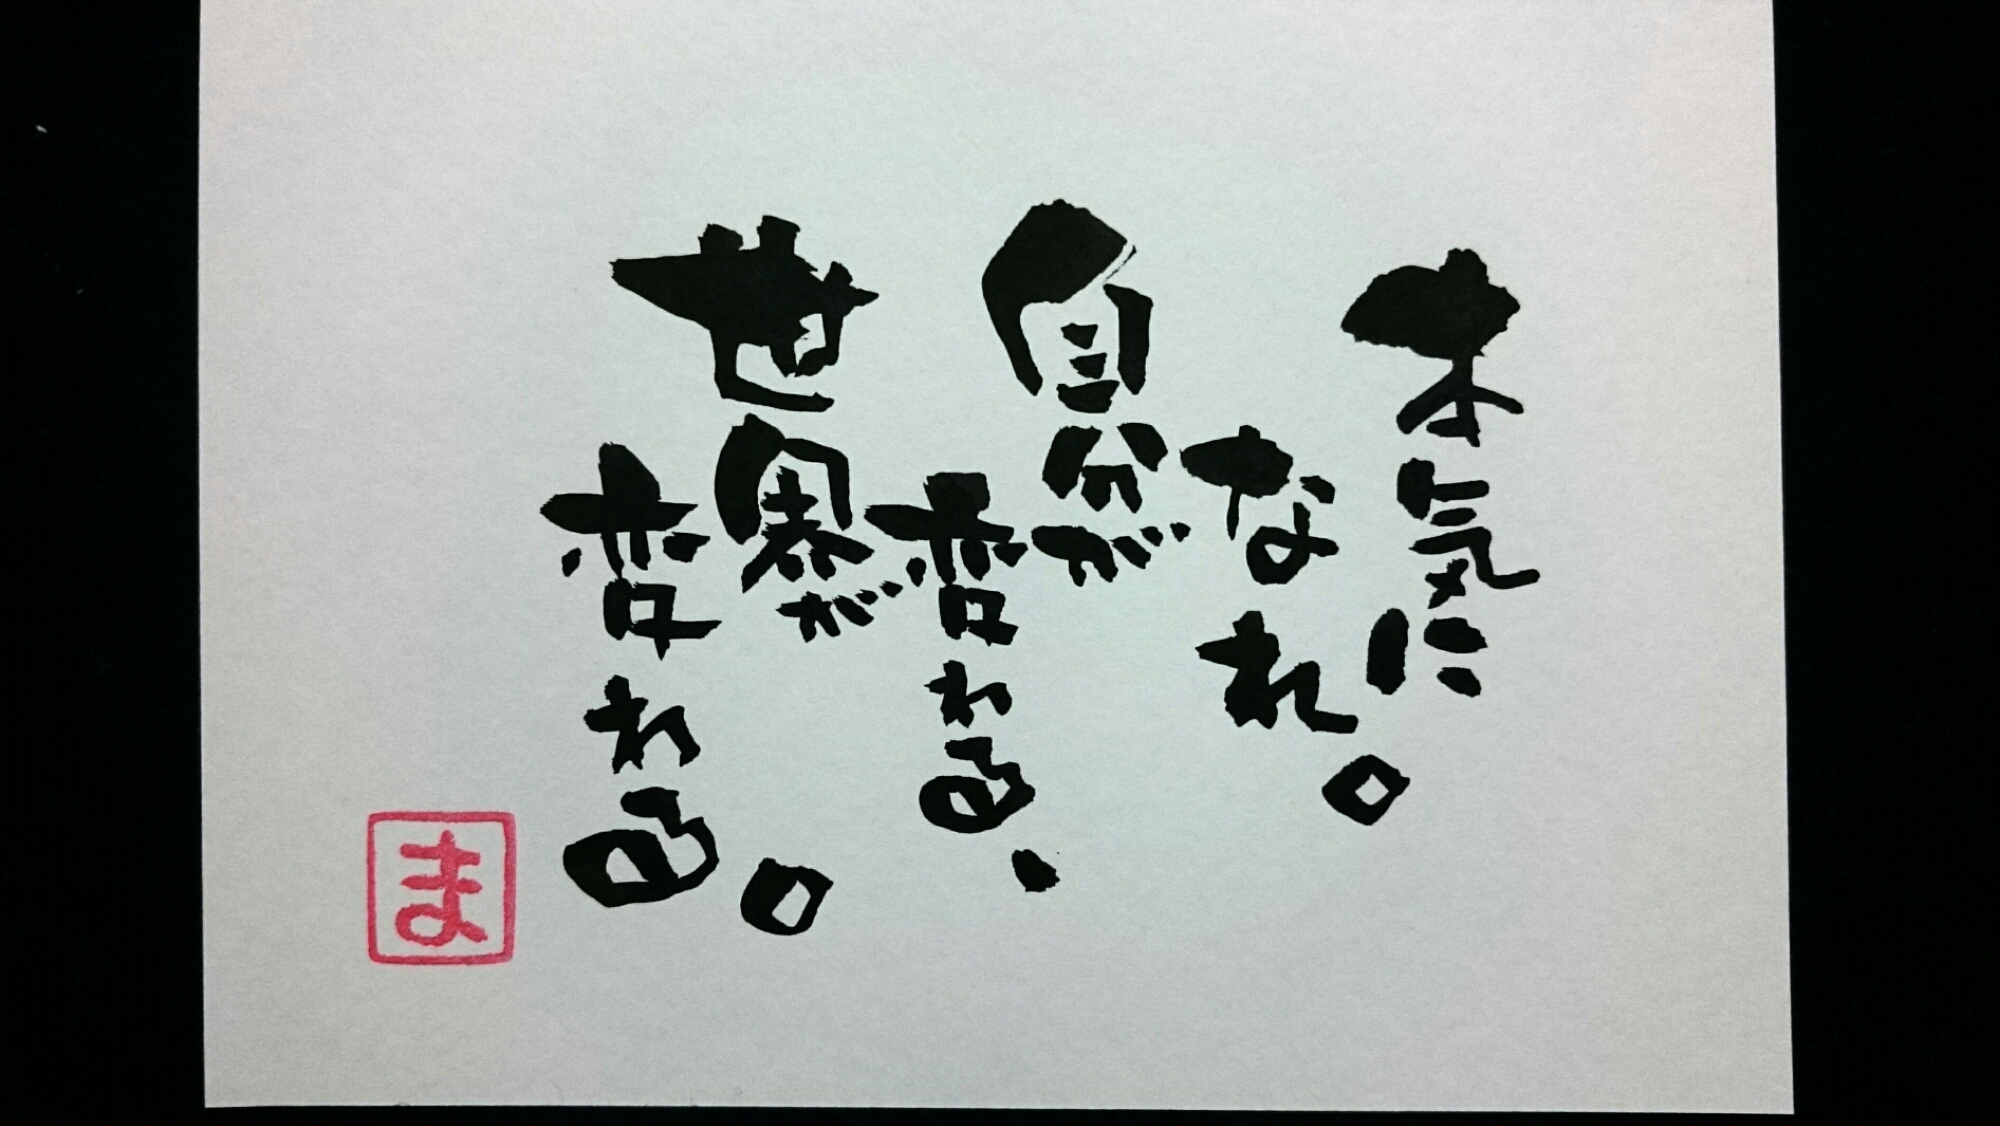 本気に
なれ。
自分が
変わる、
世界が
変わる。
ま